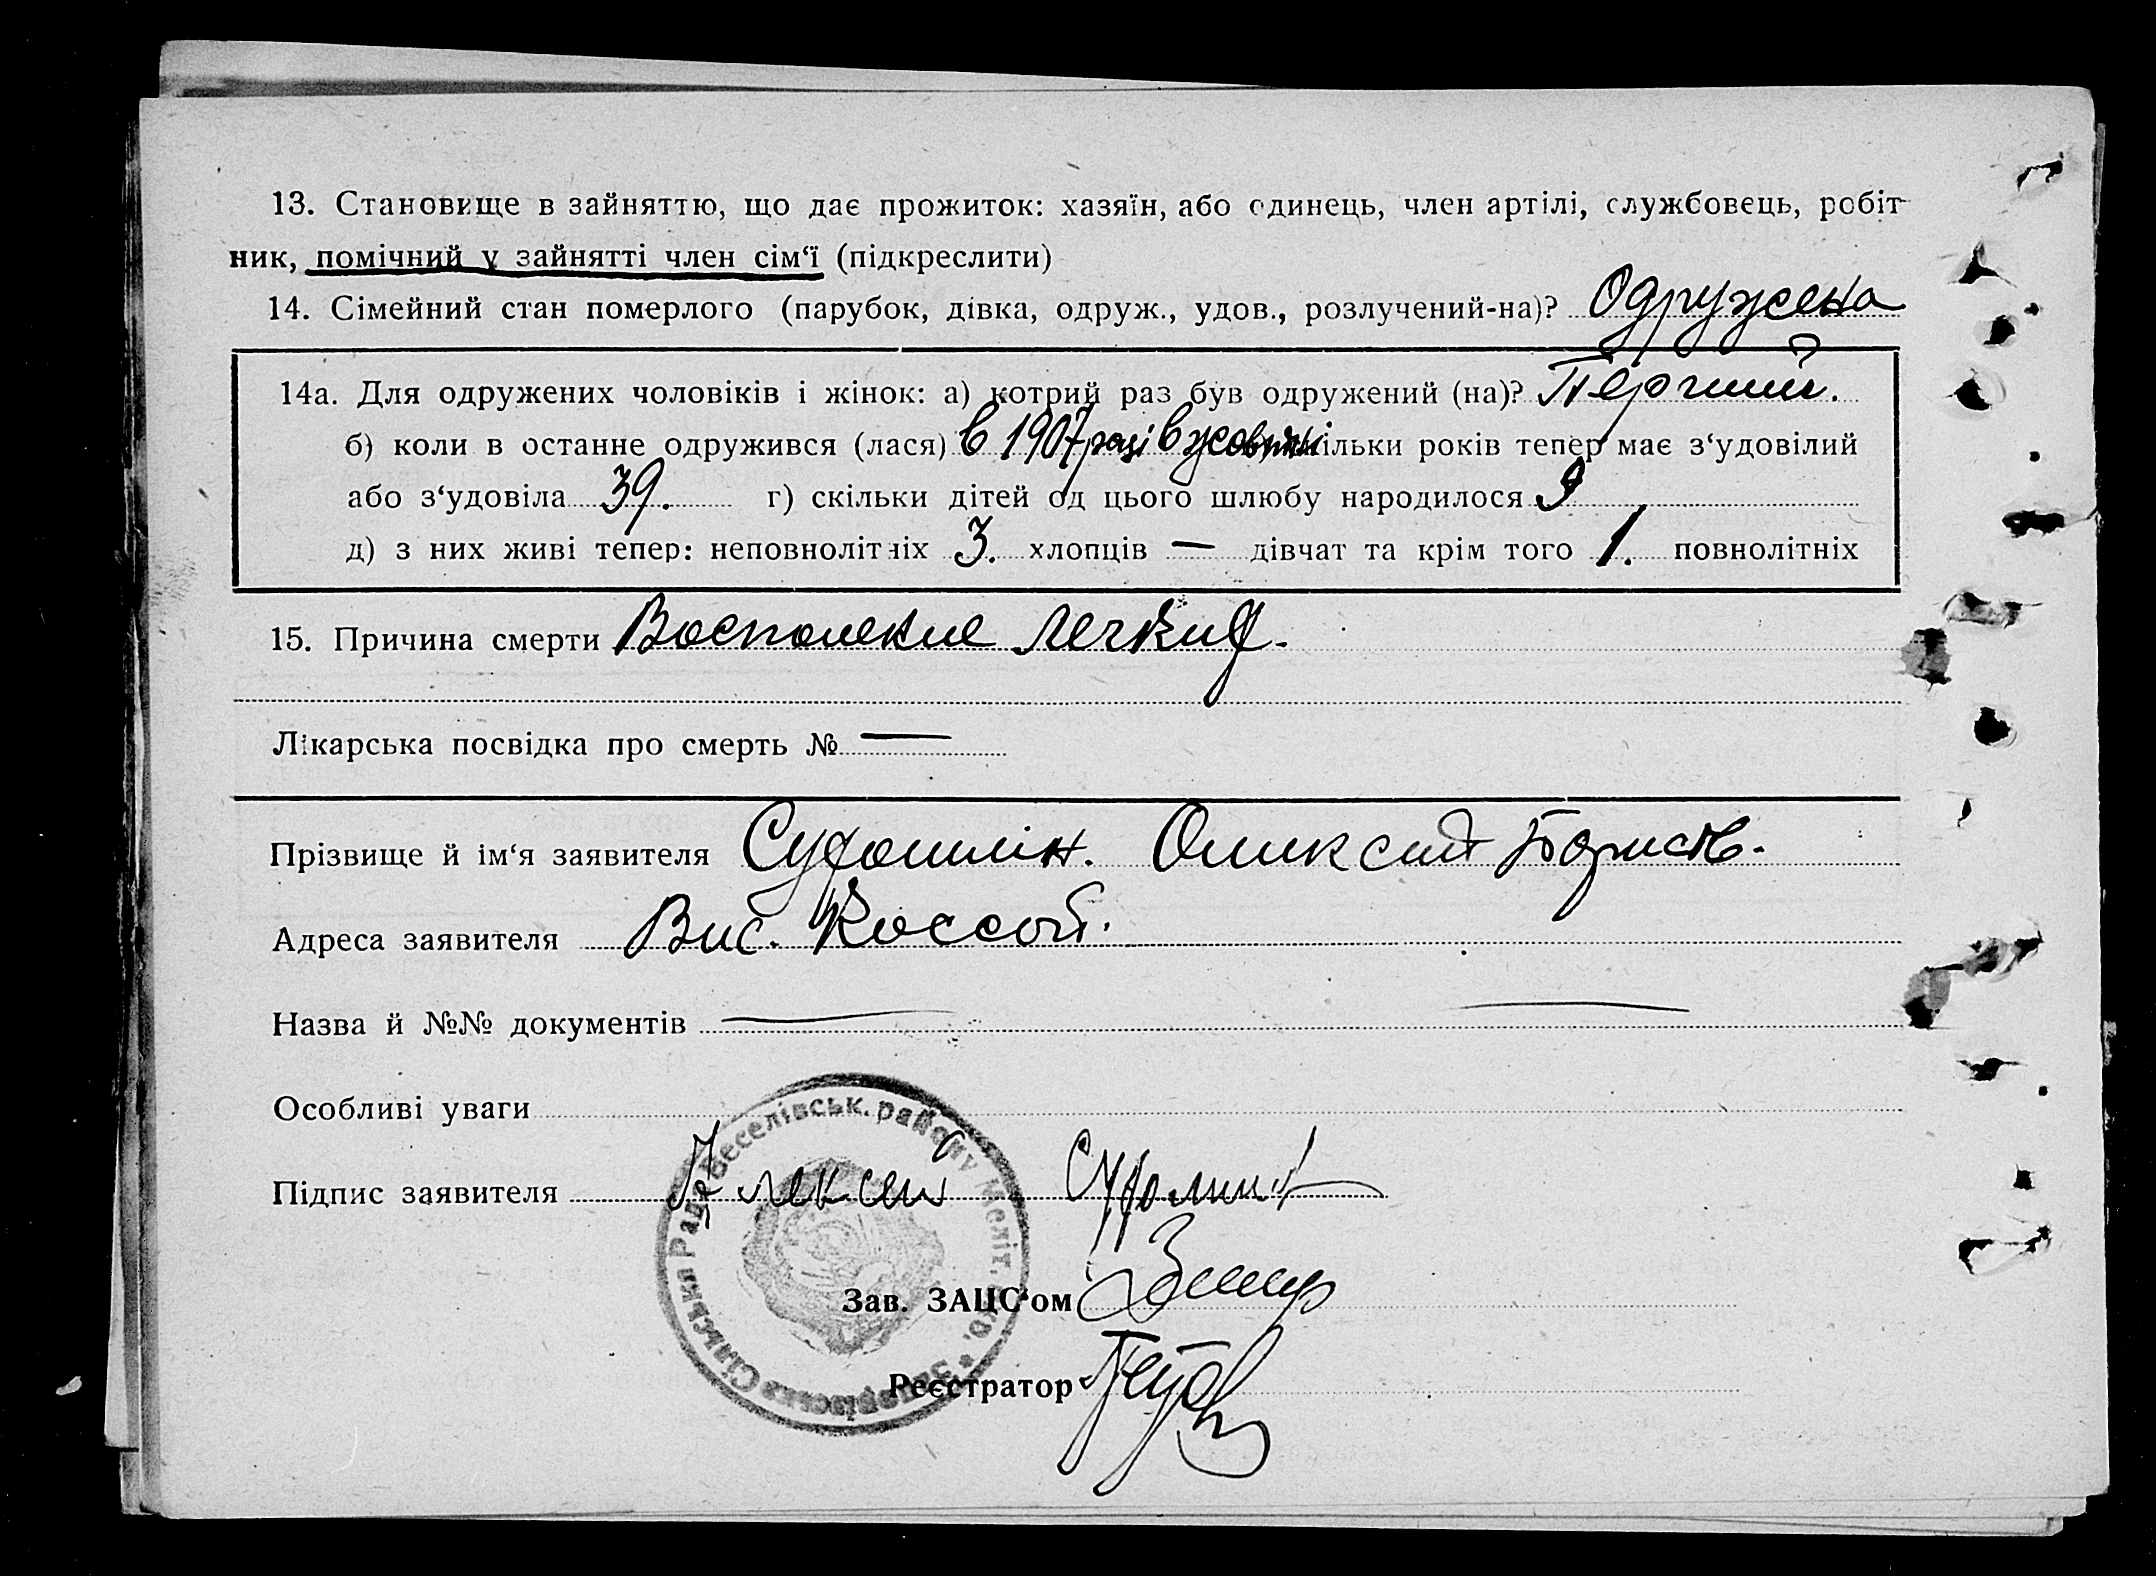 13. Становище в зайняттю, що дає прожиток: хазяїн, або одинець, член артілі, службовець, робіт-
ник, помічний у зайнятті член сім‘ї (підкреслити)
14. Сімейний стан померлого (парубок, дівка, одруж., удов., розлучений-на)? Одружена
14а. Для одружених чоловіків і жінок: а) котрий раз був одружений (на)? Перший.
б) коли в останне одружився (лася) в 1907 році в жовтні скільки років тепер має з‘удовілий
або з‘удовіла 39. г) скільки дітей од цього шлюбу народилося 9
д) з них живі тепер: неповнолітніх 3. хлопців — дівчат та крім того 1. повнолітніх
15. Причина смерти Воспаление легких.
Лікарська посвідка про смерть № —
Прізвище й ім‘я заявителя Олексій Борисов.
Адреса заявителя Вис. Коссой.
Назва й №№ документів — —
Особливі уваги
Підпис заявителя Алексей
Зав. ЗАЦС‘ом
Реєстратор
Сільська Рада Веселівськ. району Меліт. окр.